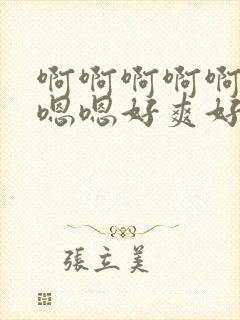 啊啊啊啊啊
嗯嗯好爽好
張立美